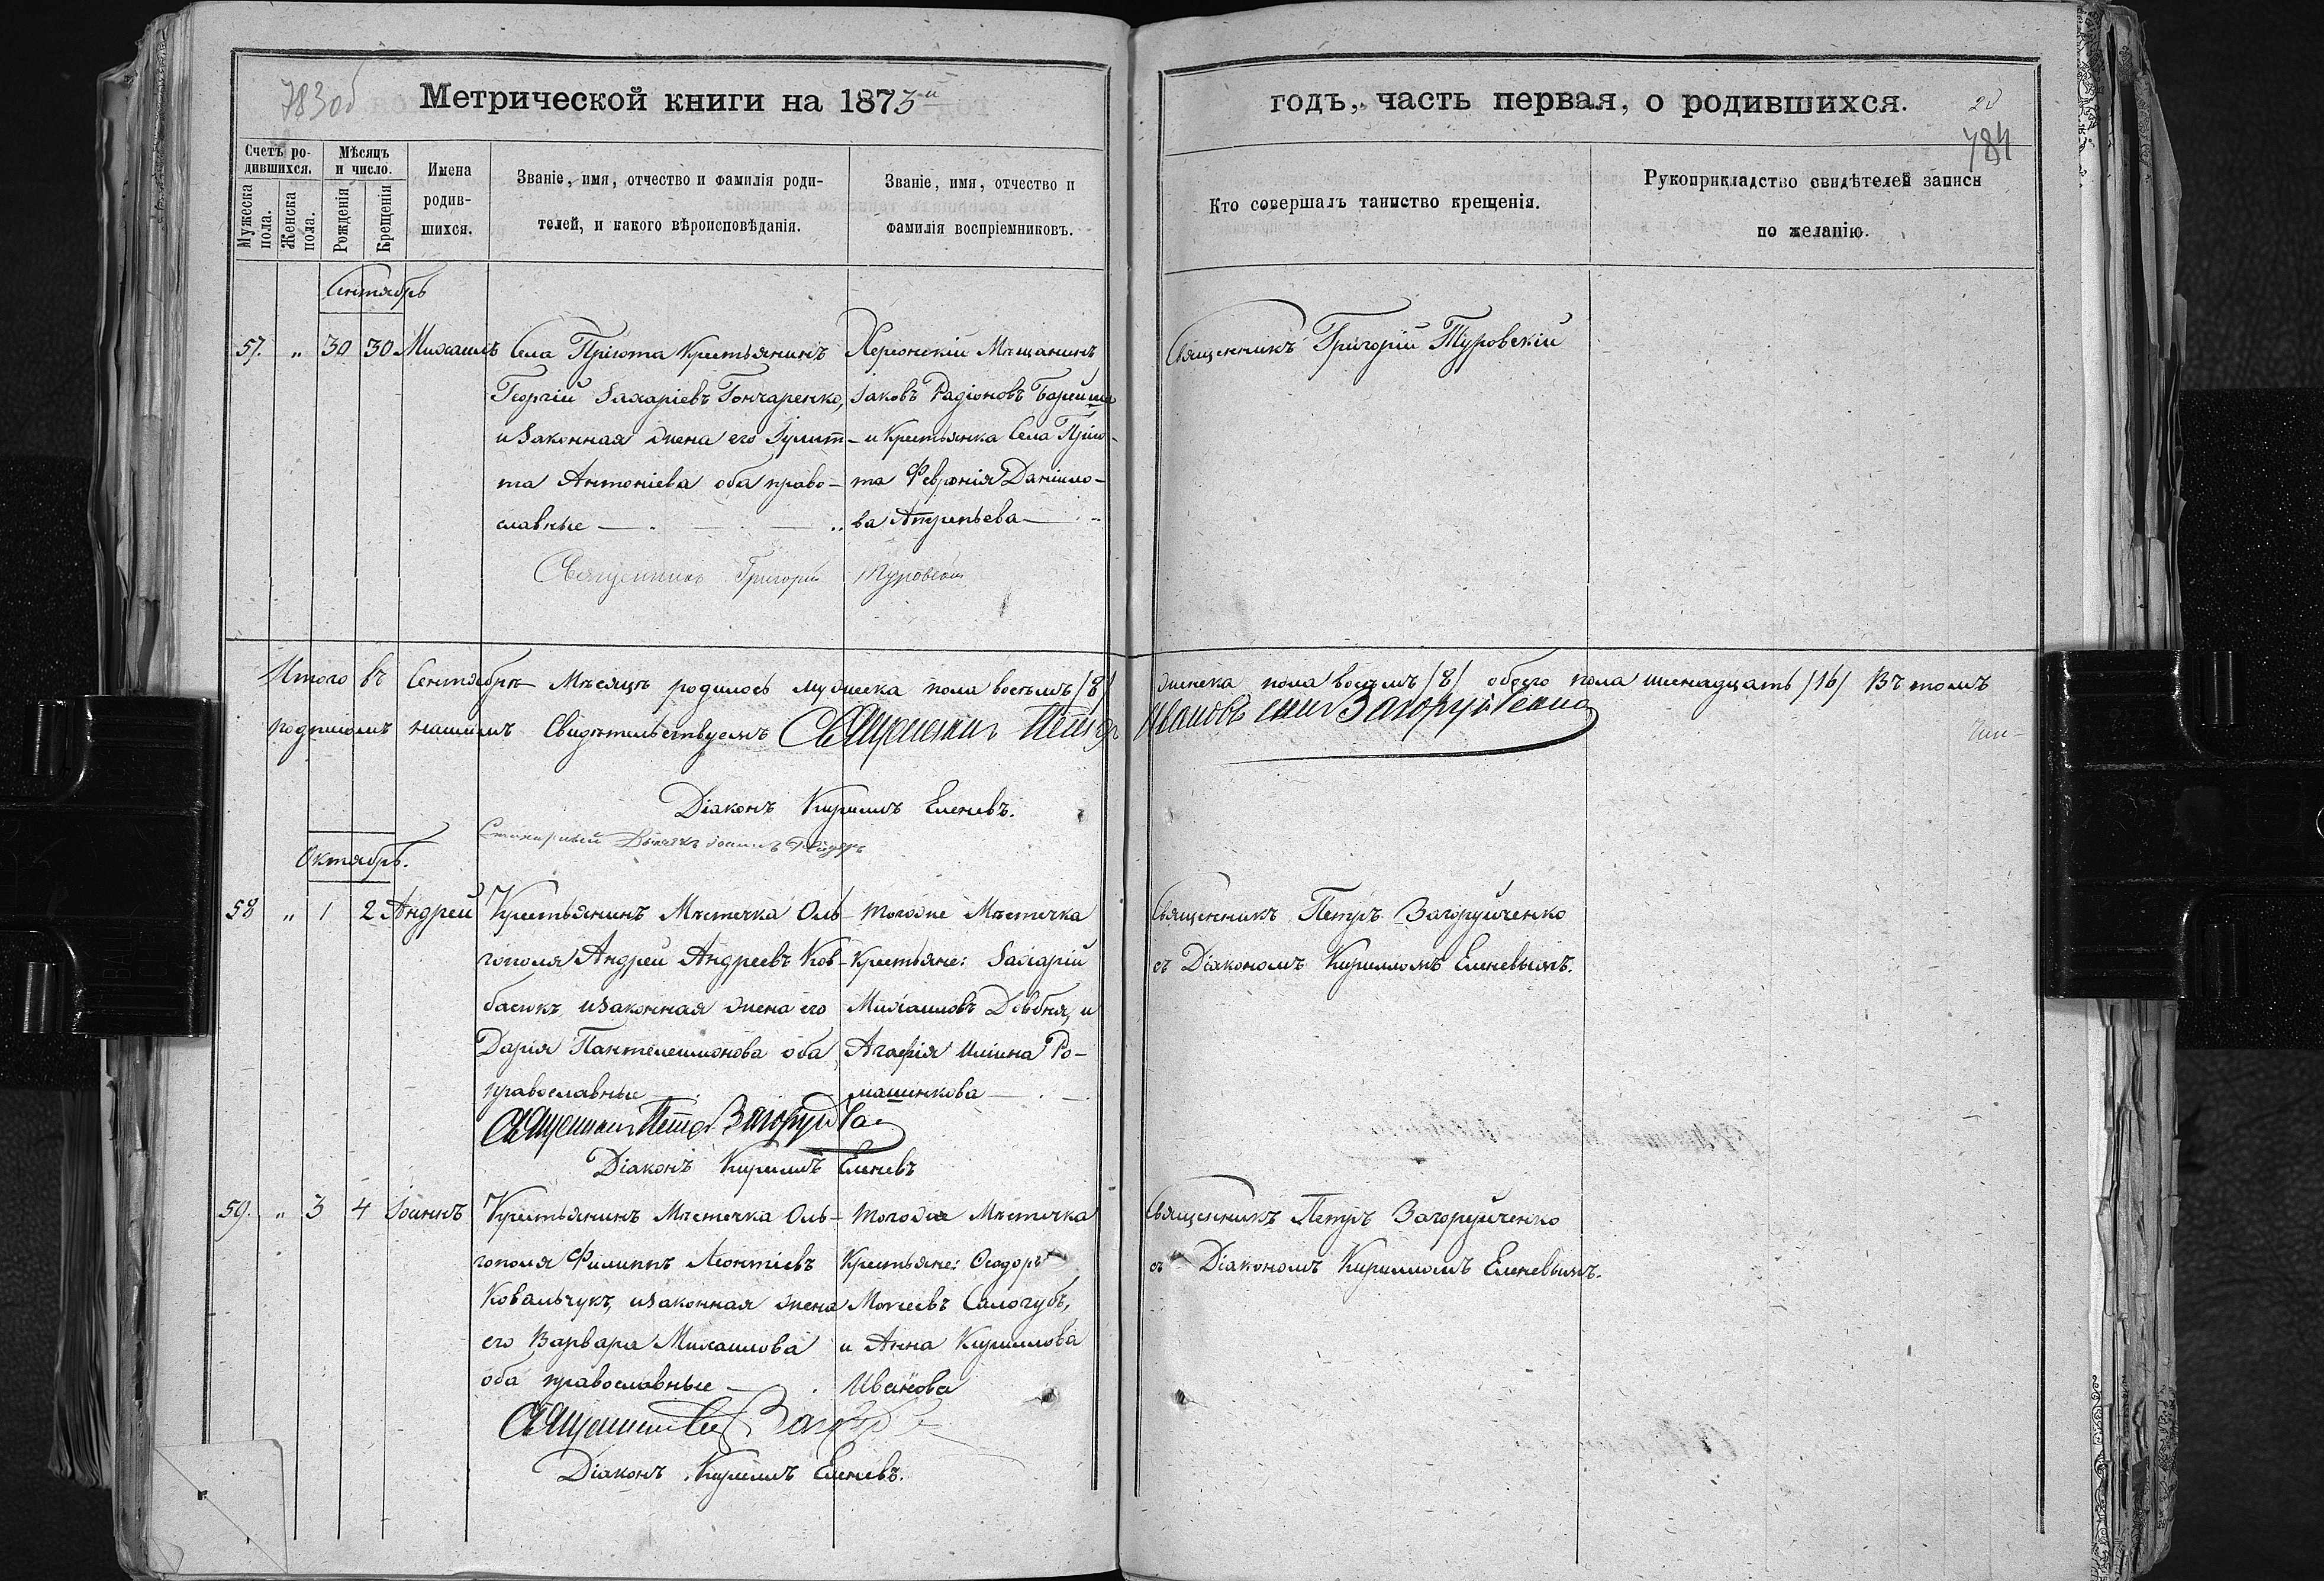 783об
Метрической книги на 1873й
годъ, часть первая, о родившихся.
784
Счетъ ро-
дившихся.
Мѣсяцъ
и число.
Мужеска
пола.
Женска
пола.
Рожденія
Крещенія
Имена
родив-
шихся.
Званіе, имя, отчество и фамилія роди-
телей, и какого вѣроисповѣданія.
Званіе, имя, отчество и
фамилія воспріемниковъ.
Кто совершалъ таинство крещенія.
Рукоприкладство свидѣтелей записи
по желанію.
Сентябрь
57. " 30 30 Михаилъ
Села Пріюта Крестьянинъ
Георгій Захаріевъ Гончаренко,
и законная жена его Іулит-
та Антоніева оба право-
славные
Херсонскій Мѣщанинъ
Іаковъ Радіоновъ
и Крестьянка Села Прію-
та Февронія Даніило-
ва
Священникъ Григорій Туровскій
Священникъ Григорій Туровскій
Итого въ Сентябрѣ Мѣсяцѣ родилось мужеска пола восемь /8/ женска пола восемь /8/ обоего пола шестнадцать /16/ Въ томъ
подписомъ нашимъ свидѣтельствуемъ Священникъ Петръ Ивановъ сынъ Загоруйченко
Діаконъ Кириллъ Еленевъ.
Октябрь.
58 " 1 2 Андрей
Крестьянинъ Мѣстечка Оль-
гополя Андрей Андреевъ Ков-
басюкъ, и законная жена его
Дарія Пантелеимонова оба
православные
Тогоже Мѣстечка
Крестьяне: Захарій
Михаиловъ Довбня, и
Агафія Иліина Ро-
машенкова
Священникъ Петръ Загоруйченко
съ Діакономъ Кирилломъ Еленевымъ.
Священникъ Петръ Загоруйченко
Діаконъ Кириллъ Еленевъ
59. " 3 4 Іоаннъ
Крестьянинъ Мѣстечка Оль-
гополя Филиппъ Леонтіевъ
Ковальчукъ, и законная жена
его Варвара Михаилова
оба православные
Тогоже Мѣстечка
Крестьяне: Ѳеодоръ
Моѵсеевъ Салогубъ,
и Анна Кириллова
Иванова
Священникъ Петръ Загоруйченко
съ Діакономъ Кирилломъ Еленевымъ.
Діаконъ Кириллъ Еленевъ.